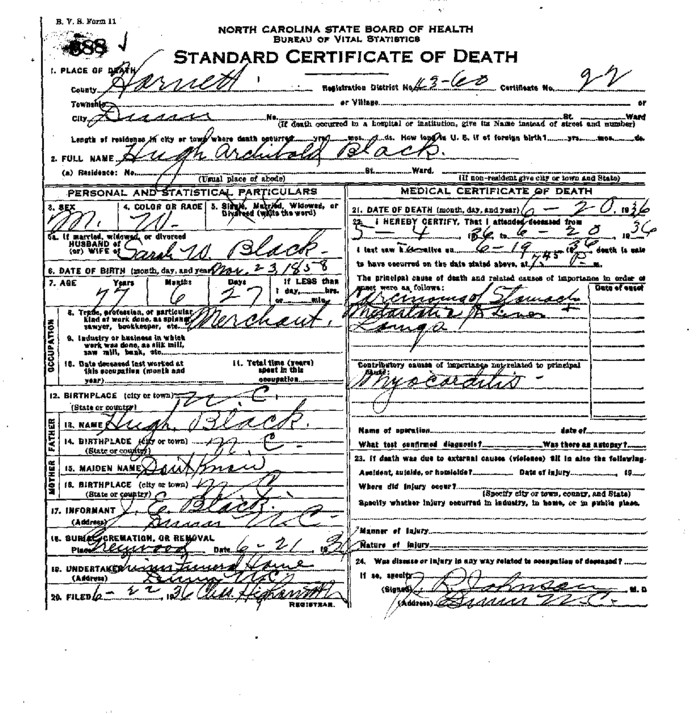 B. V. S. Form 11
888
NORTH CAROLINA STATE BOARD OF HEALTH
BUREAU OF VITAL STATISTICS
STANDARD CERTIFICATE OF DEATH
1. PLACE OF DEATH
County Harnett Registration District No. 43-60 Certificate No. 92
Township or Village or
City Dunn No. St. Ward
(If death occurred in a hospital or institution, give its Name instead of street and number)
Length of residence in city or town where death occurred yrs. mos. ds. How long in U. S. if of foreign birth? yrs. mos. ds.
2. FULL NAME Hugh Archibold Black.
(a) Residence: No. St. Ward.
(Usual place of abode) (If non-resident give city or town and State)
PERSONAL AND STATISTICAL PARTICULARS
3. SEX 4. COLOR OR RACE 5. Single, Married, Widowed, or
Divorced (write the word)
M. W.
5a. If married, widowed, or divorced
HUSBAND of
(or) WIFE of Sarah W. Black
6. DATE OF BIRTH (month, day, and year) Nov. 23 1858
7. AGE Years Months Days If LESS than
1 day, hrs.
or min.
77 6 27
OCCUPATION
8. Trade, profession, or particular
kind of work done, as spinner,
sawyer, bookkeeper, etc. Merchant.
9. Industry or business in which
work was done, as silk mill,
saw mill, bank, etc.
10. Date deceased last worked at
this occupation (month and
year)
11. Total time (years)
spent in this
occupation
12. BIRTHPLACE (city or town) N. C.
(State or country)
FATHER
13. NAME Hugh Black.
14. BIRTHPLACE (city or town) N. C.
(State or country)
MOTHER
15. MAIDEN NAME Don't know
16. BIRTHPLACE (city or town) N. C.
(State or country)
17. INFORMANT J. E. Black.
(Address) Dunn N.C.
18. BURIAL, CREMATION, OR REMOVAL
Place Greenwood Date 6-21 1936
19. UNDERTAKER Funeral Home
(Address) Dunn N.C.
20. FILED 6-22, 1936
REGISTRAR.
MEDICAL CERTIFICATE OF DEATH
21. DATE OF DEATH (month, day, and year) 6-20, 1936
22. I HEREBY CERTIFY, That I attended deceased from
5-4, 36, to 6-20, 1936
I last saw h alive on 6-19, 1936 death is said
to have occurred on the date stated above, at 7:45 P. m.
The principal cause of death and related causes of importance in order of
onset were as follows: Date of onset
Carcinoma of Stomach
Metastatic Liver +
Lungs
Contributory causes of importance not related to principal
cause:
Myocarditis
Name of operation date of
What test confirmed diagnosis? Was there an autopsy?
23. If death was due to external causes (violence) fill in also the following:
Accident, suicide, or homicide? Date of injury 19
Where did injury occur?
(Specify city or town, county, and State)
Specify whether injury occurred in industry, in home, or in public place.
Manner of Injury
Nature of Injury
24. Was disease or injury in any way related to occupation of deceased?
If so, specify
(Signed) Johnson M. D
(Address) Dunn N.C.